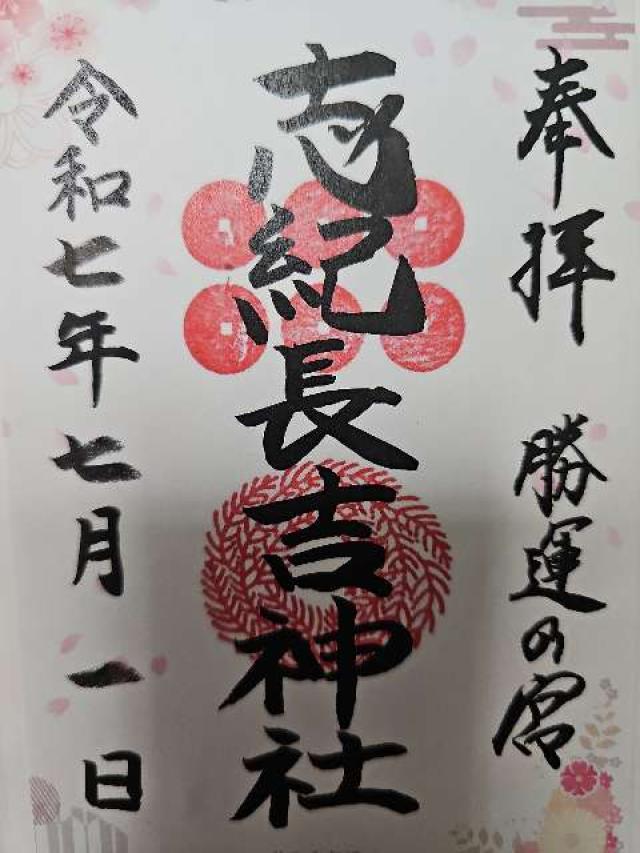 奉拝 勝運の宮
志紀長吉神社
令和七年七月一日